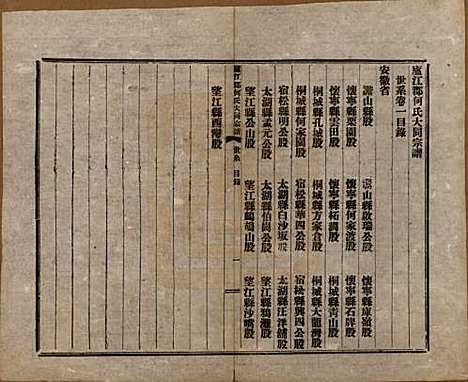 廬江郡何氏大同宗譜
世系卷一目錄
安徽省
潛山縣股
霍山縣啟瑞公股
懷寧縣庫嶺股
懷寧縣栗園股
懷寧縣何家渡股
懷寧縣石牌股
懷寧縣雲田股
懷寧縣柘澗股
桐城縣青山股
桐城縣孔城股
桐城縣方家倉股
桐城縣大龍灣股
桐城縣何家園股
宿松縣華四公股
宿松縣興四公股
宿松縣明公股
太湖縣白沙坂股
太湖縣汪洋舖股
太湖縣孟元公股
太湖縣伯尚公股
望江縣鴉灘股
望江縣公山股
望江縣鵝鴣山股
望江縣沙嘴股
望江縣西灣股
廬江郡何氏大同宗譜
世系 目錄
一